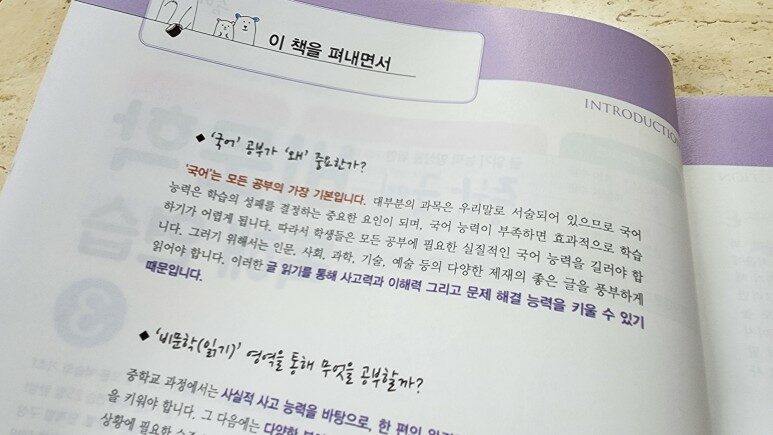 이 책을 펴내면서
INTRODUCTION
◆ '국어' 공부가 '왜' 중요한가?
'국어'는 모든 공부의 가장 기본입니다. 대부분의 과목은 우리말로 서술되어 있으므로 국어
능력은 학습의 성패를 결정하는 중요한 요인이 되며, 국어 능력이 부족하면 효과적으로 학습
하기가 어렵게 됩니다. 따라서 학생들은 모든 공부에 필요한 실질적인 국어 능력을 길러야 합
니다. 그러기 위해서는 인문, 사회, 과학, 기술, 예술 등의 다양한 제재의 좋은 글을 풍부하게
읽어야 합니다. 이러한 글 읽기를 통해 사고력과 이해력 그리고 문제 해결 능력을 키울 수 있기
때문입니다.
◆ '비문학(읽기)' 영역을 통해 무엇을 공부할까?
중학교 과정에서는 사실적 사고 능력을 바탕으로, 한 편의
을 키워야 합니다. 그 다음에는 다양한
상황에 필요한